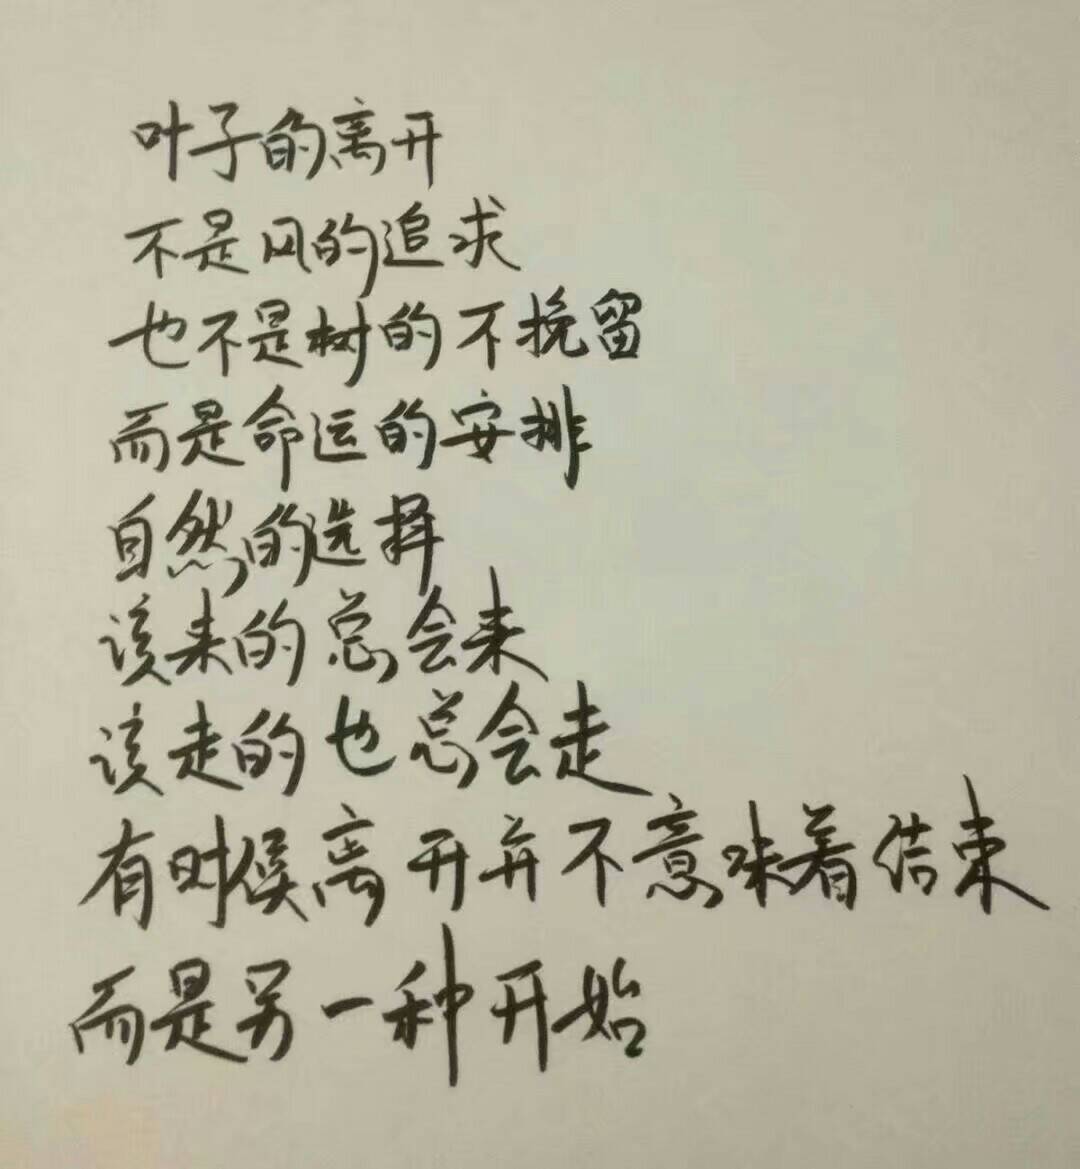 叶子的离开
不是风的追求
也不是树的不挽留
而是命运的安排
自然的选择
该来的总会来
该走的也总会走
有时候离开并不意味着结束
而是另一种开始